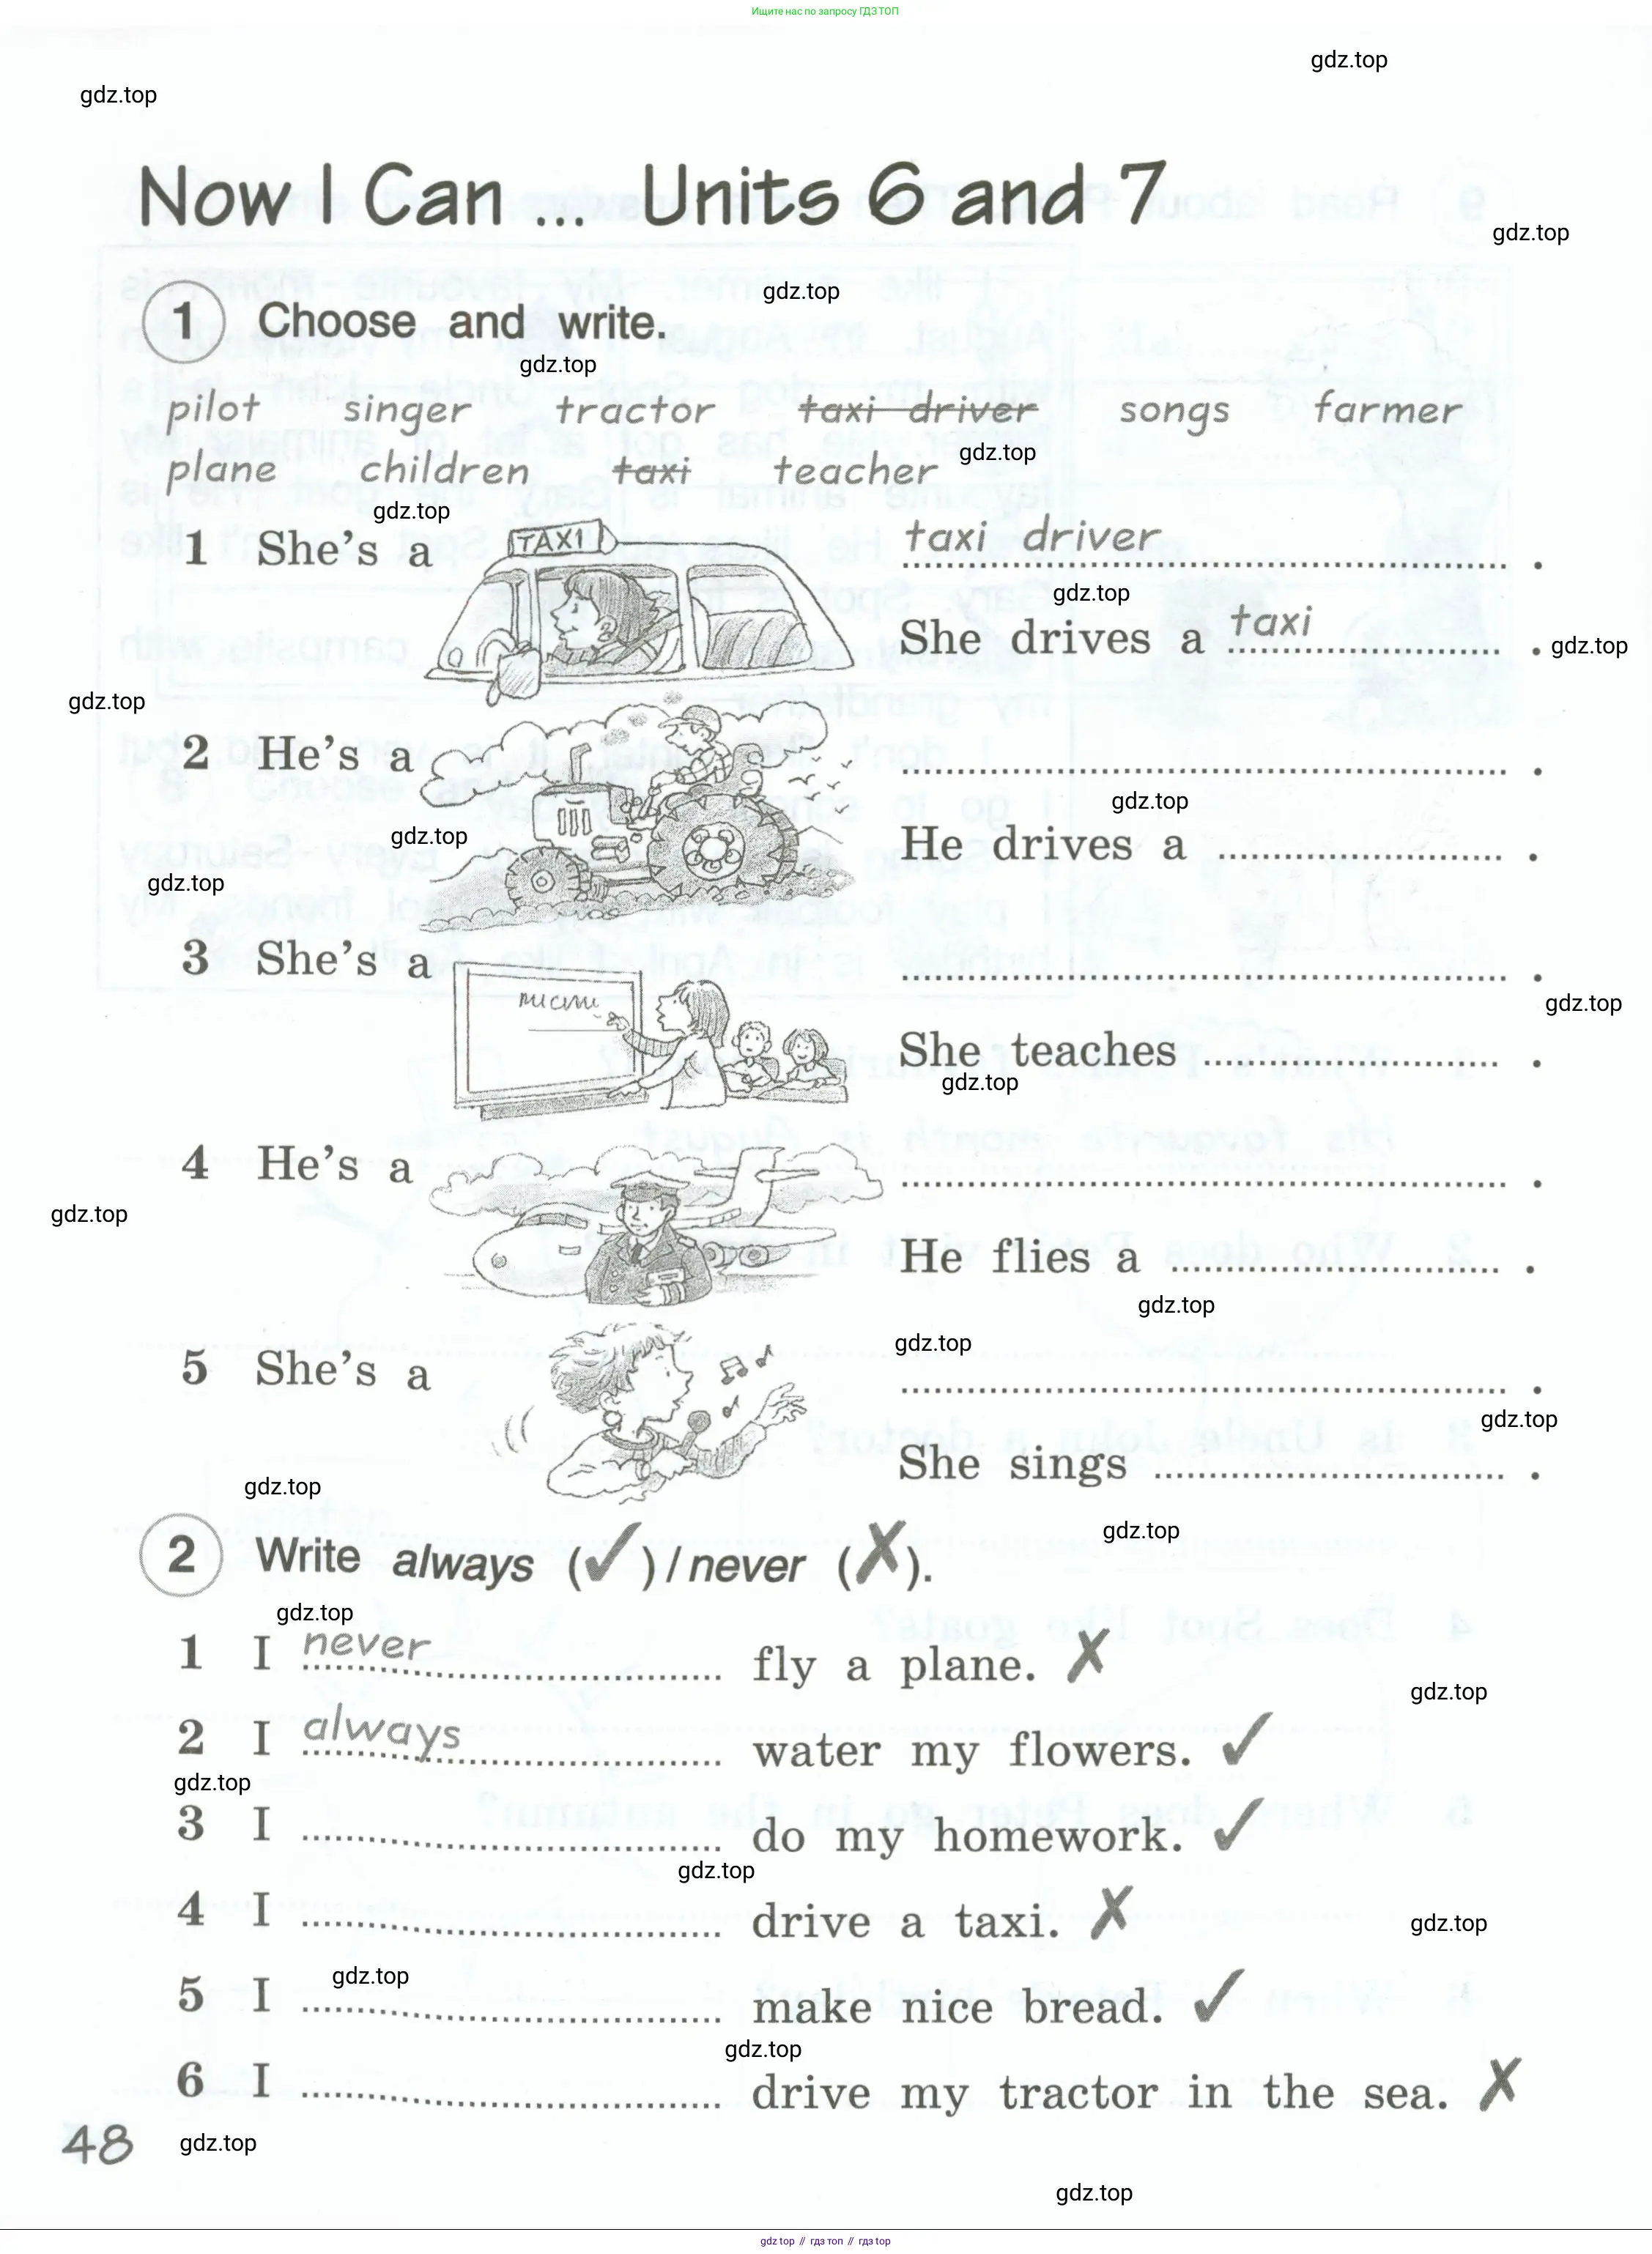 Ищите нас по запросу ГДЗ ТОП
gdz.top
gdz.top
Now I Can ... Units 6 and 7
gdz.top
gdz.top
1 Choose and write.
gdz.top
pilot singer tractor taxi driver songs farmer
gdz.top
plane children taxi teacher
gdz.top
1 She's a TAXI taxi driver .
gdz.top
She drives a taxi .
gdz.top
gdz.top
2 He's a .
gdz.top
gdz.top
He drives a .
gdz.top
3 She's a .
писали
gdz.top
She teaches .
gdz.top
4 He's a .
gdz.top
He flies a .
gdz.top
gdz.top
5 She's a .
gdz.top
She sings .
gdz.top
gdz.top
2 Write always (✓) / never (✗).
gdz.top
1 I never fly a plane. ✗
gdz.top
2 I always water my flowers. ✓
gdz.top
3 I do my homework. ✓
gdz.top
4 I drive a taxi. ✗
gdz.top
gdz.top
5 I make nice bread. ✓
gdz.top
6 I drive my tractor in the sea. ✗
48
gdz.top
gdz.top
gdz top // гдз топ // gdz top